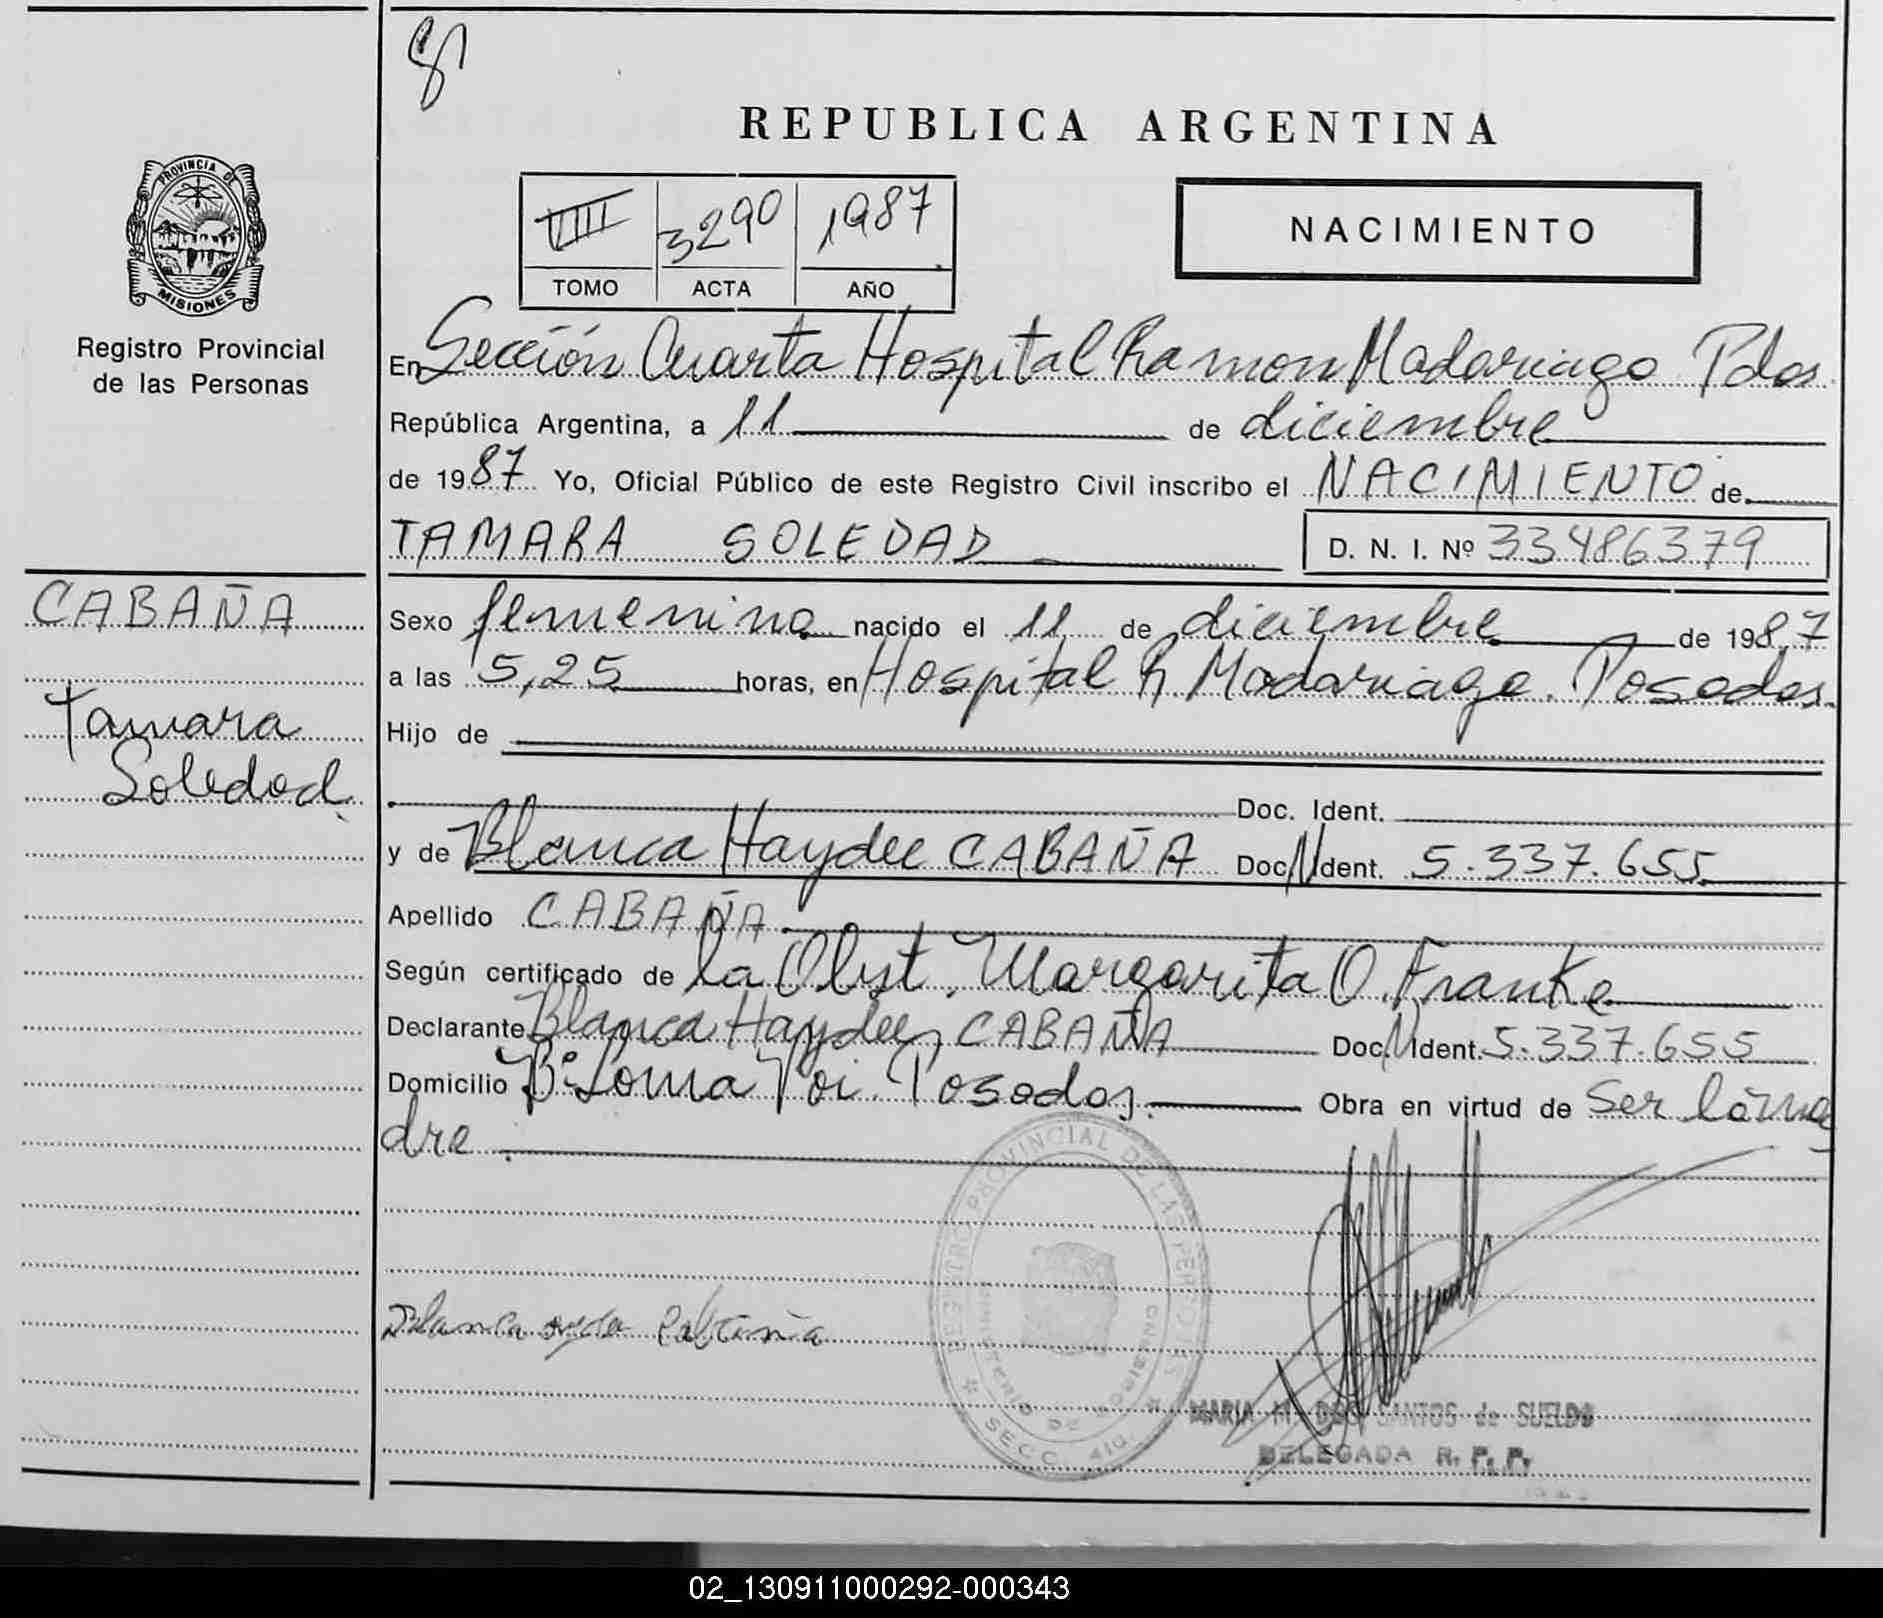 8
REPUBLICA ARGENTINA
PROVINCIA DE
MISIONES
Registro Provincial
de las Personas
VIII 3290 1987
TOMO ACTA AÑO
NACIMIENTO
En Sección Cuarta Hospital Ramon Madariaga Pdas
República Argentina, a 11 de diciembre
de 1987 Yo, Oficial Público de este Registro Civil inscribo el NACIMIENTO de
TAMARA SOLEDAD D. N. I. Nº 33486379
CABAÑA
Tamara
Soledad
Sexo femenino nacido el 11 de diciembre de 1987
a las 5,25 horas, en Hospital R Madariaga. Posadas.
Hijo de
Doc. Ident.
y de Blanca Haydee CABAÑA Doc N Ident. 5.337.655
Apellido CABAÑA
Según certificado de la Obst. Margarita O. Franke
Declarante Blanca Haydee CABAÑA Doc N Ident. 5.337.655
Domicilio Bº Loma Poi. Posadas. Obra en virtud de Ser la ma
dre.
REGISTRO PROVINCIAL DE LAS PERSONAS
MINISTERIO DE GOBIERNO
SECC. 4ta.
Blanca
MARIA M. DOS SANTOS de SUELDO
DELEGADA R. P. P.
02_130911000292-000343